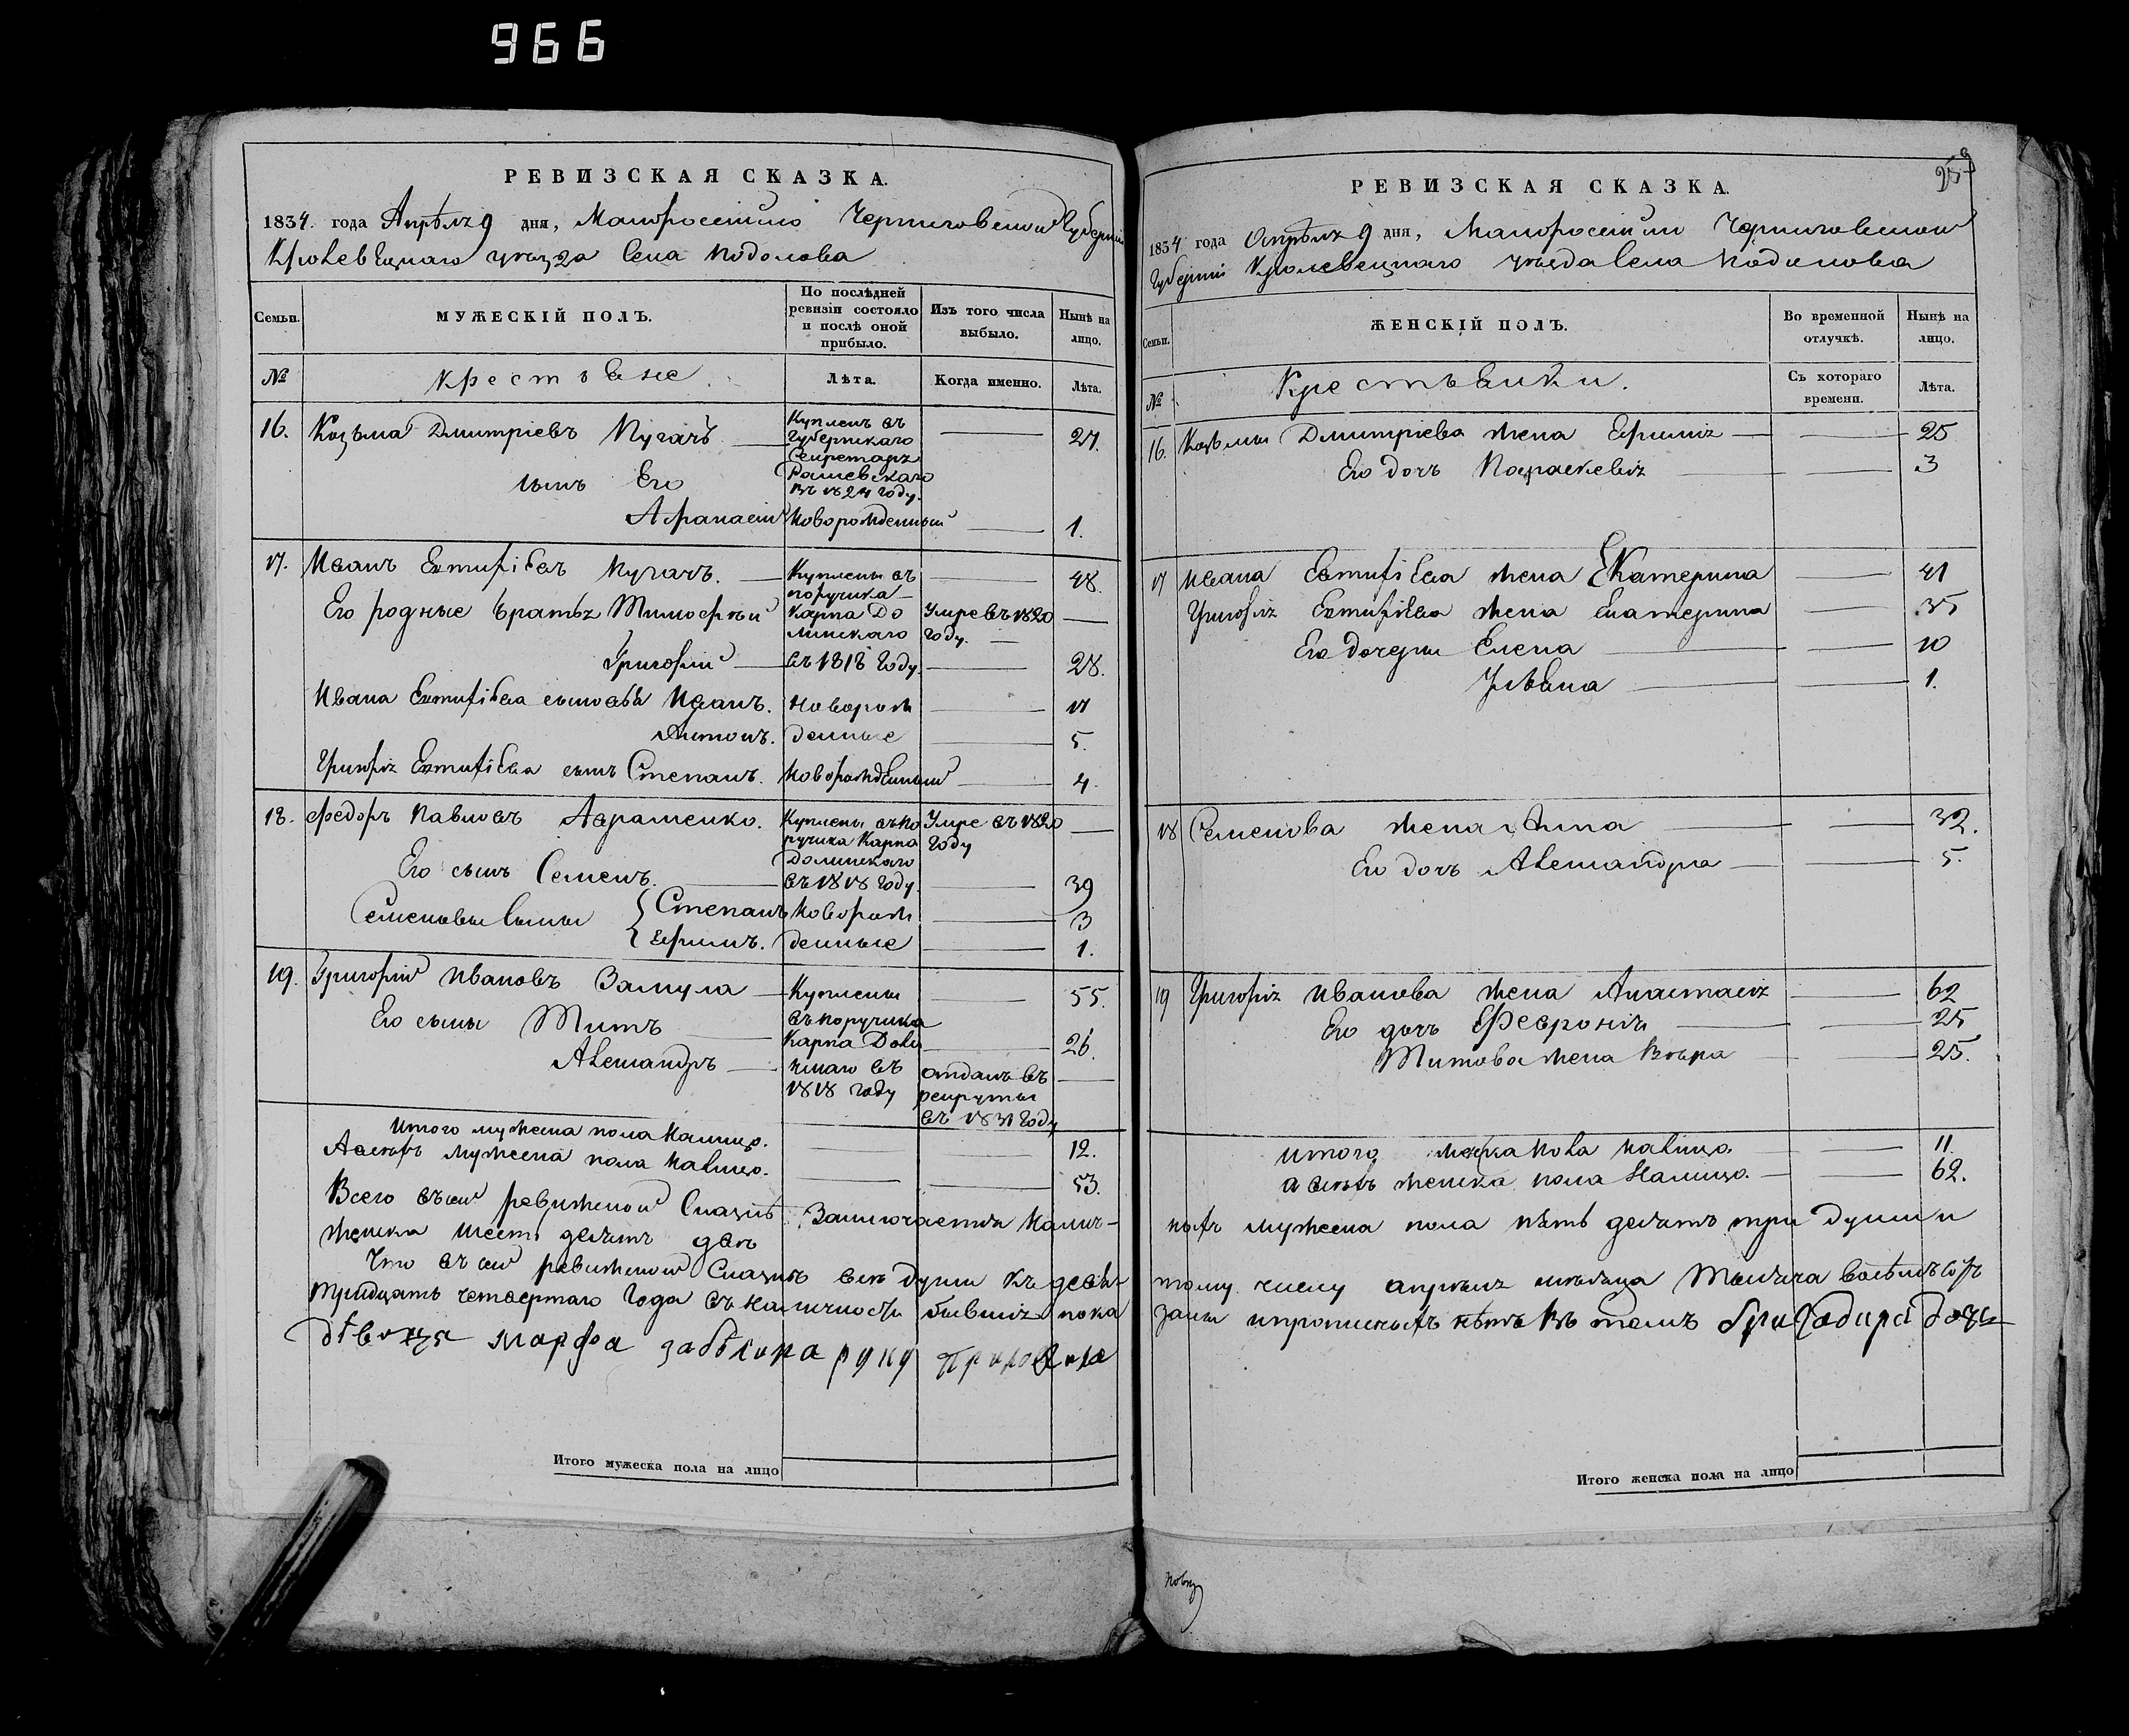 966
РЕВИЗСКАЯ СКАЗКА.
1834. года Апрѣля 9 дня, Малоросейской Черниговской Губерніи
Кролевецкаго уезда Села Подолова
Семьи.
МУЖЕСКІЙ ПОЛЪ.
По послѣдней ревизіи состояло и послѣ оной прибыло.
Изъ того числа выбыло.
Нынѣ на лицо.
№
Крестьяне.
Лѣта.
Когда именно.
Лѣта.
16. Козьма Дмитріевъ Пугачъ
Купленъ въ Губернскаго Секретаря Рашевскаго въ 1824 году.
27.
сынъ Его
Афанасий Новорожденный 1.
17. Иванъ Евтифіевъ Пугачъ.
Куплены въ поручика Карпа Долинскаго въ 1818 году.
48.
Его родные братья Тимофѣй
Умре въ 1820 году.
Григорій 28.
Ивана Евтифіева сыновья Иванъ. Новорож 17
Антонъ. денные 5.
Григорія Евтифіева сынъ Степанъ. Новорожденный 4.
18. Федоръ Павловъ Авраменко.
Куплены въ поручика Карпа Долинскаго въ 1818 году.
Умре въ 1820 году
Его сынъ Семенъ. 39
Семеновы Сыны { Степанъ Новорож 3
Ефимъ. денные 1.
19. Григорій Ивановъ Замула
Куплены въ поручика Карпа Долинскаго въ 1818 году
55.
Его сыны Титъ 26.
Александръ
отданъ въ рекруты въ 1831 году
Итого мужеска пола налицо. 12.
А всехъ мужеска пола налицо. 53.
Всего въ сей ревижской Сказкѣ Заключается налич-
женска шесть десятъ две
Что въ сей ревижской Сказкѣ все души къ девя-
тридцать четвертаго Года въ наличности бывшия пока
дѣвица марфа забѣлина руку приложила
Итого мужеска пола на лицо
РЕВИЗСКАЯ СКАЗКА.
1834 года Апрѣля 9 дня, Малоросейской Черниговской
Губерніи Кролевецкаго уезда Села Подолова
Семьи.
ЖЕНСКІЙ ПОЛЪ.
Во временной отлучкѣ.
Нынѣ на лицо.
№
Крестьянки.
Съ котораго времени.
Лѣта.
16. Козьмы Дмитріева жена Ефимия 25
Его дочь Параскевия 3
17 Ивана Евтифіева жена Екатерина 41
Григорія Евтифіева жена Екатерина 35
Его дочери Елена 10
Ульяна 1.
18 Семенова жена Анна 32.
Его дочь Александра 5.
19 Григорія Иванова жена Анастасия 62
Его дочь Феврония 25
Титова жена Вѣра 25.
Итого женска пола налицо. 11.
а всехъ женска пола Налицо. 62.
ныхъ мужеска пола пять десятъ три души и
тому числу апрѣля месяца Тысяча восѣмъ сотъ
заны и прописныхъ нѣтъ Въ томъ бригадира дочь
Итого женска пола на лицо